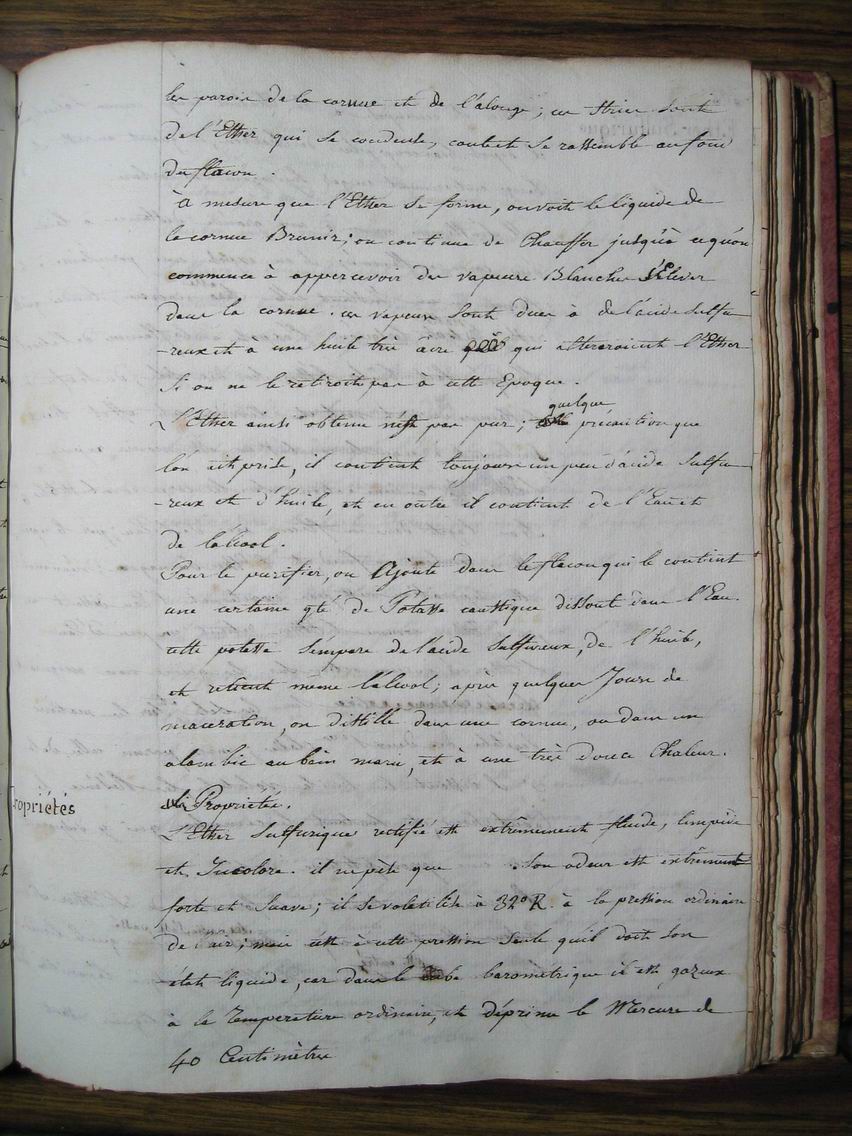 les parois de la cornue et de l'alonge; ces stries sont
de l'Ether qui se condense, coule et se rassemble au fond
du flacon.
à mesure que l'Ether se forme, on voit le liquide de
la cornue Brunir; on continue de Chauffer jusqu'à ce qu'on
commence à appercevoir des vapeurs Blanches s'Elever
dans la cornue. ces vapeurs sont dues à de l'acide sulfu
-reux et à une huile très âcre qui altereroient l'Ether
si on ne le retiroit pas à cette Epoque.
L'Ether ainsi obtenu n'est pas pur; quelque précaution que
l'on ait prise, il contient toujours un peu d'acide sulfu
-reux et d'huile, et en outre il contient de l'Eau et
de l'alcool.
Pour le purifier, on Ajoute dans le flacon qui le contient
une certaine qté de Potasse caustique dissoute dans l'Eau.
cette potasse s'empare de l'acide sulfureux, de l'huile,
et retient même l'alcool; après quelques Jours de
maceration, on distille dans une cornue, ou dans un
alambic au bain marie, et à une très douce Chaleur.
Propriétés
Proprietés.
L'Ether sulfurique rectifié est extrêmement fluide, limpide
et Incolore. il ne pèse que son odeur est extrêmement
forte et suave; il se volatilise à 32° R. à la pression ordinaire
de l'air; mais c'est à cette pression seule qu'il doit son
état liquide, car dans le tube barometrique il est gazeux
à la Temperature ordinaire, et déprime le Mercure de
40 Centimètres